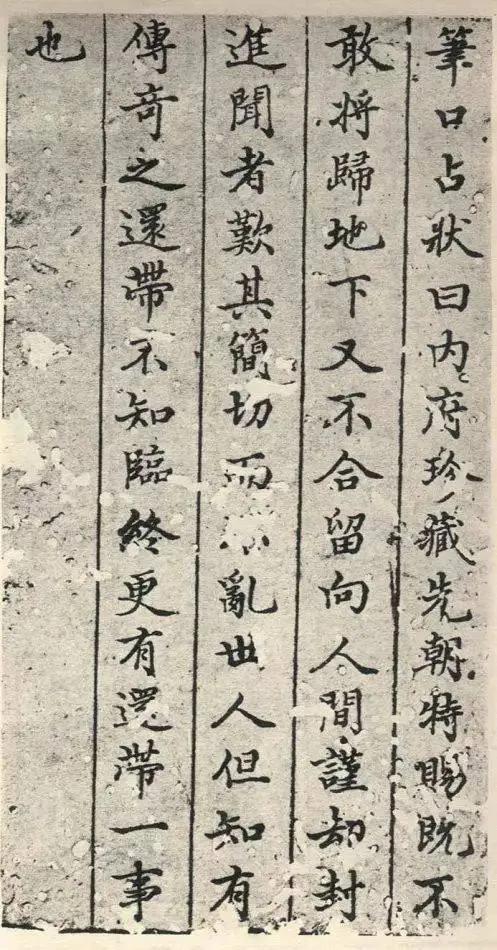 筆口占狀曰内府珍藏先朝特賜既不
敢将歸地下又不合留向人間謹却封
進聞者歎其簡切而不亂世人但知有
傳奇之還帶不知臨終更有還帶一事
也